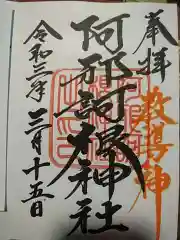 奉拝
教導神
阿邪訶根神社
令和三年三月十五日